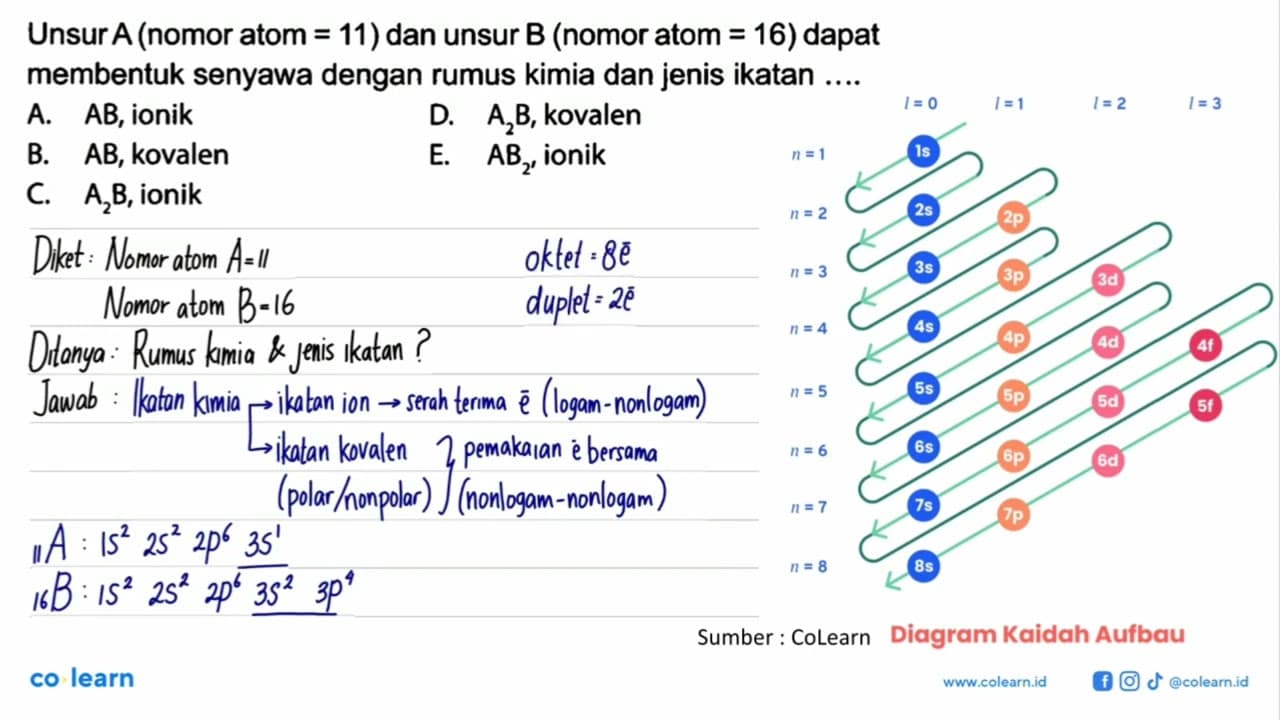 Unsur A (nomor atom = 11) dan unsur B (nomor atom = 16) dapat
membentuk senyawa dengan rumus kimia dan jenis ikatan ....
A. AB, ionik
B. AB, kovalen
C. A₂B, ionik
D. A₂B, kovalen
E. AB₂, ionik
Diket : Nomor atom A = 11
Nomor atom B = 16
oktet = 8ē
duplet = 2ē
Ditanya : Rumus kimia & jenis ikatan ?
Jawab : Ikatan kimia → ikatan ion → serah terima ē (logam-nonlogam)
→ ikatan kovalen } pemakaian ē bersama
(polar/nonpolar) (nonlogam-nonlogam)
₁₁A : 1s² 2s² 2p⁶ 3s¹
₁₆B : 1s² 2s² 2p⁶ 3s² 3p⁴
l = 0 l = 1 l = 2 l = 3
n = 1 1s
n = 2 2s 2p
n = 3 3s 3p 3d
n = 4 4s 4p 4d 4f
n = 5 5s 5p 5d 5f
n = 6 6s 6p 6d
n = 7 7s 7p
n = 8 8s
Sumber : CoLearn Diagram Kaidah Aufbau
co learn
www.colearn.id @colearn.id